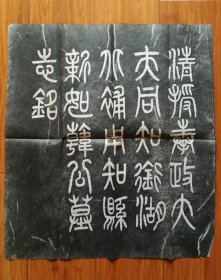 清授奉政大
夫同知銜湖
北補用知縣
新如韓公墓
志銘